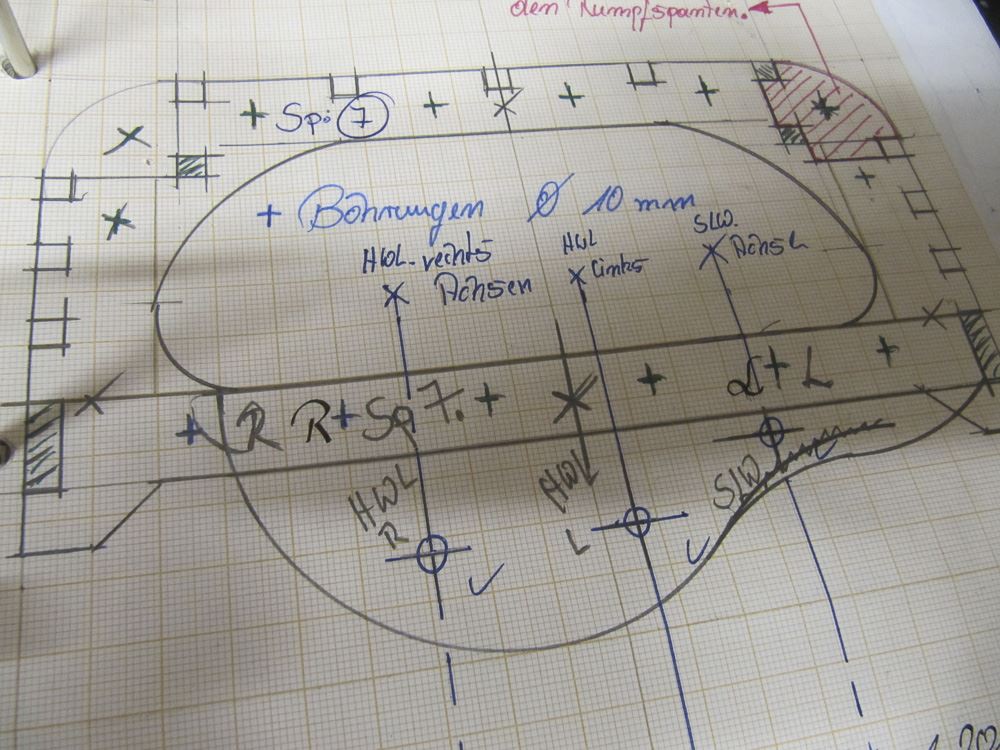 den Rumpfspanten.
Sp: 7
+ Bohrungen Ø 10 mm
HWL-rechts
Achsen
HWL
links
SLW.
Achse
R R+Sp 7.
L+L
HWL
R
HWL
L
SLW